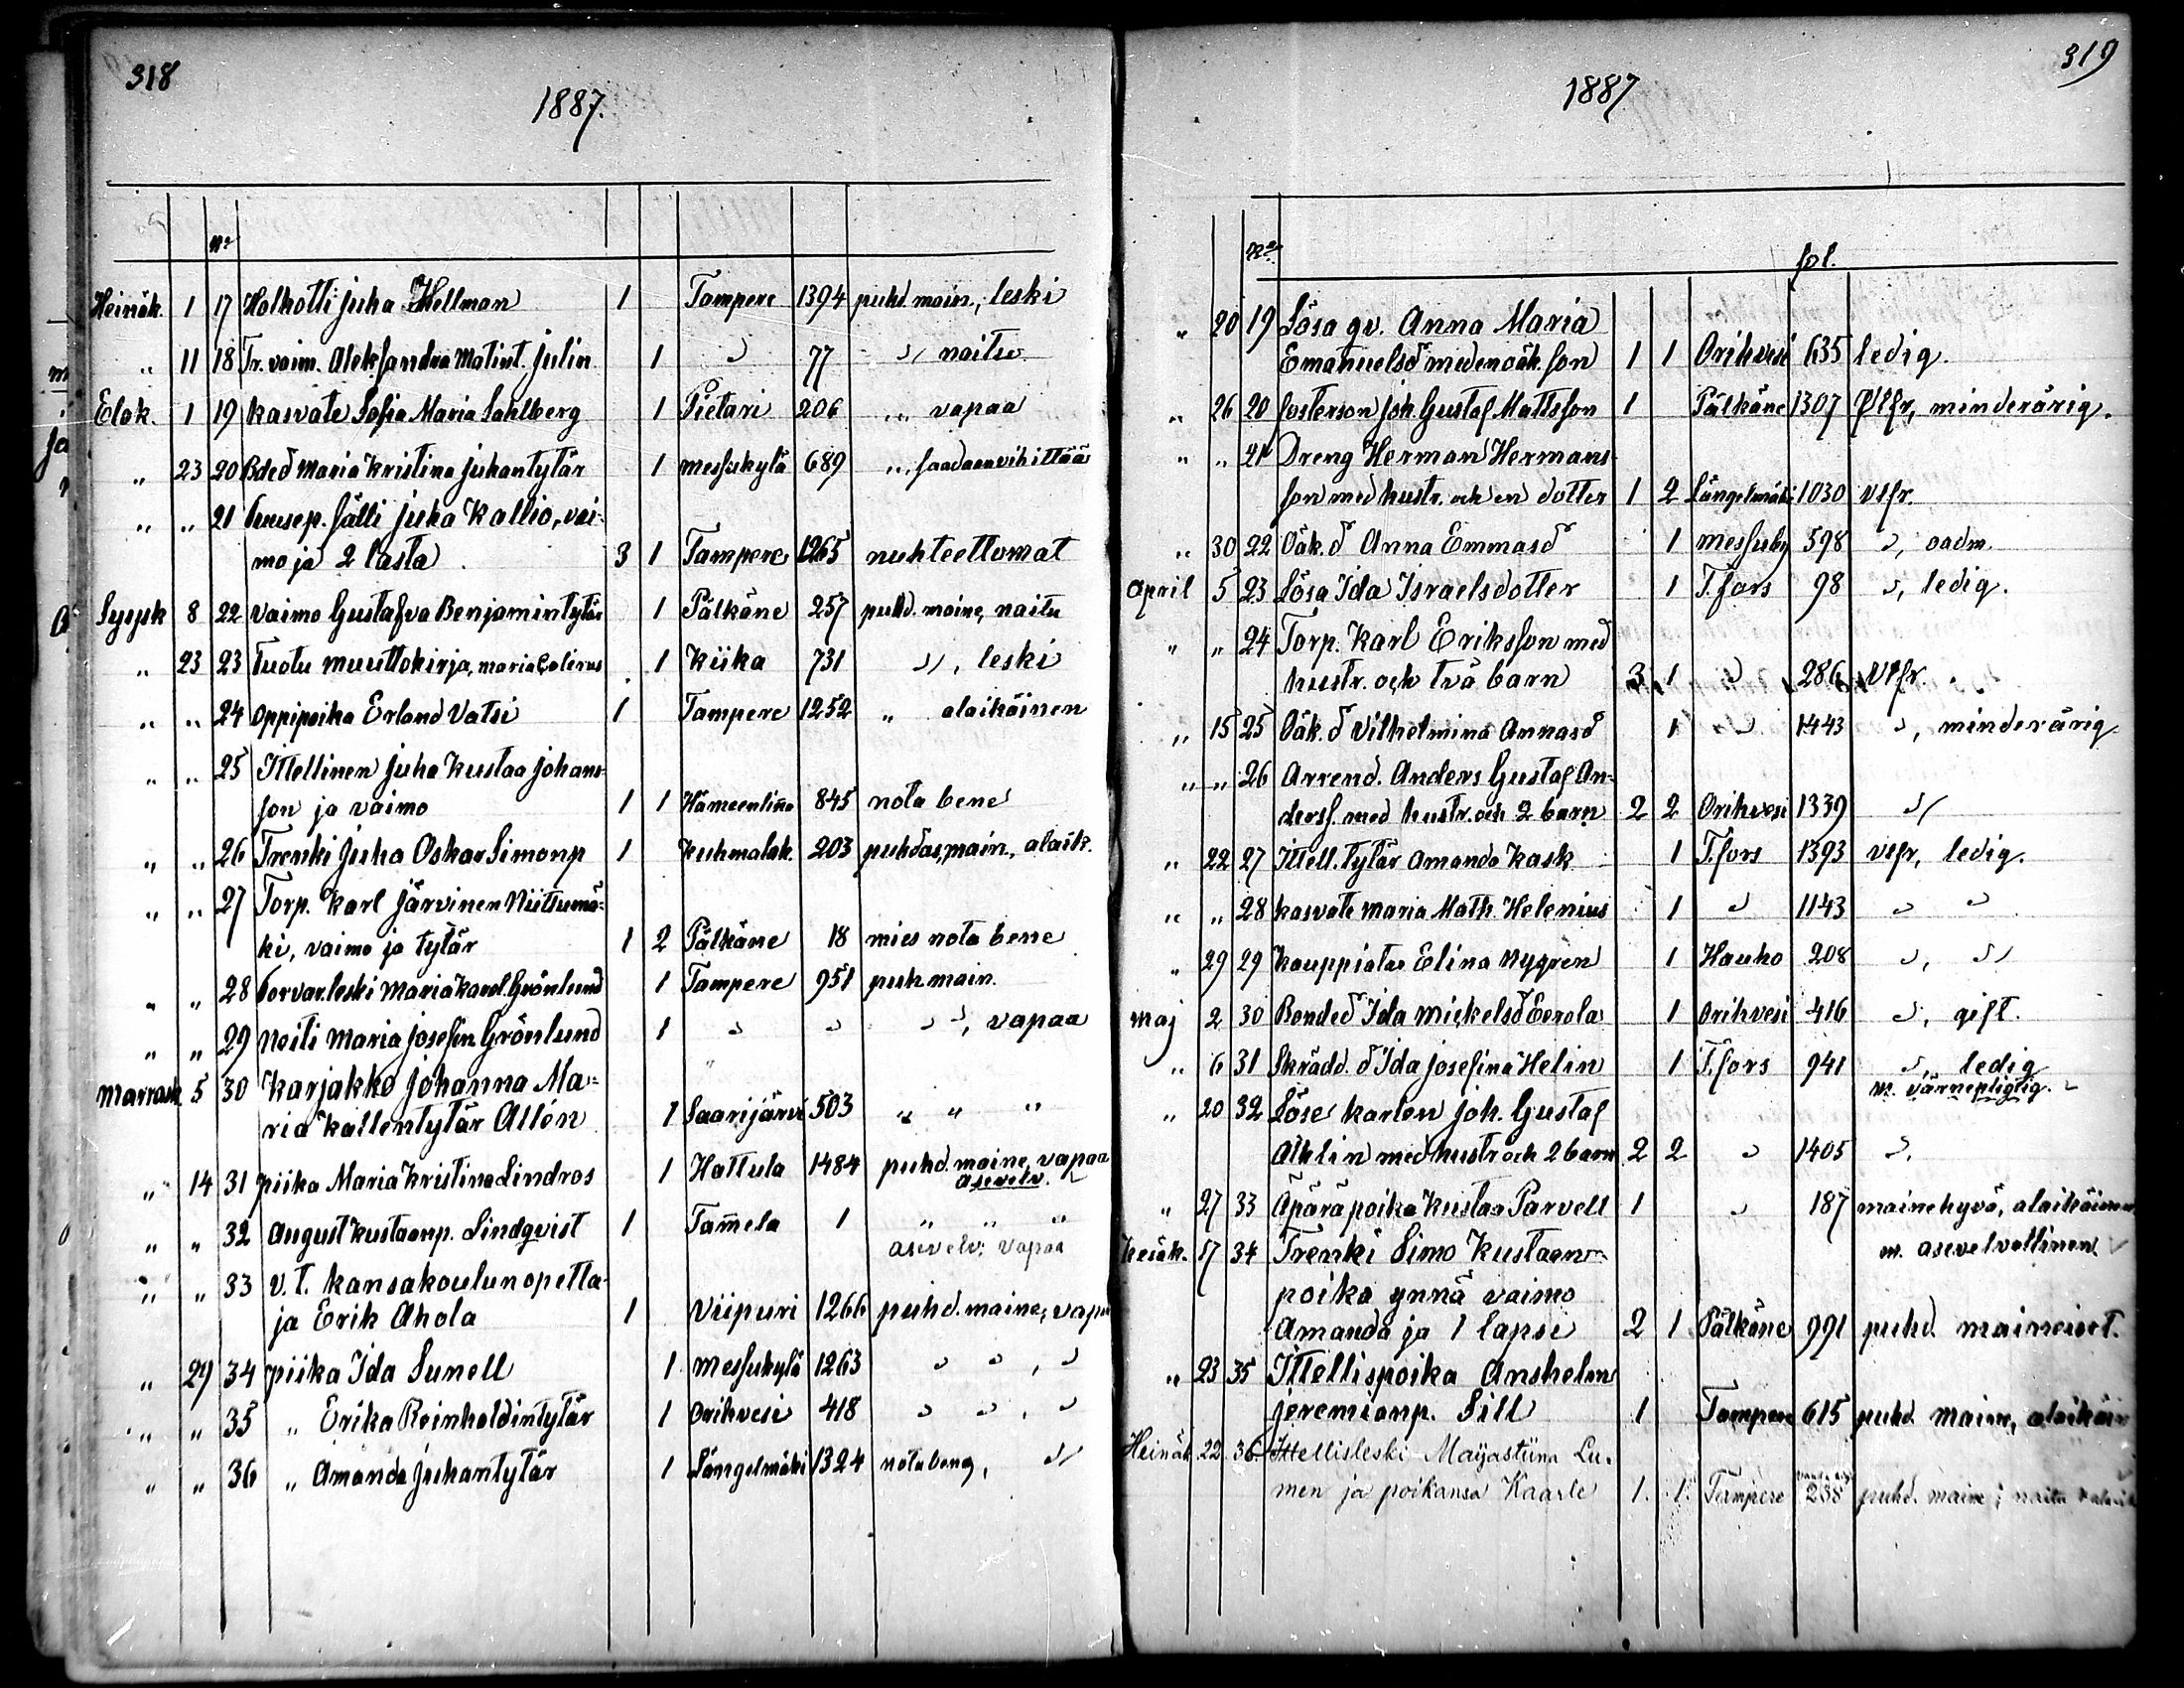 318
1887.
No
Heinäk. 1 17 Holhotti Juha Hellman 1 Tampere 1394 puhd. main., leski
" 11 18 Tr. vaim. Aleksandra Matint. Julin 1 " 77 " naitu
Elok. 1 19 kasvate Sofia Maria Sahlberg 1 Pietari 206 " vapaa
" 23 20 Bded Maria Kristina Juhantytär 1 Messukylä 689 " saadaan vihittää
" " 21 huusep. sälli Juha Kallio, vai-
mo ja 2 lasta 3 1 Tampere 1265 nuhteettomat
Syysk 8 22 Vaimo Gustafva Benjamintytär 1 Pälkäne 257 puhd. maine, naitu
" 23 23 Tuotu muuttokirja, Maria 1 Kiika 731 ", leski
" " 24 Oppipoika Erland Vatsi 1 Tampere 1252 " alaikäinen
" " 25 Ittellinen Juha Kustaa Johans-
son ja vaimo 1 1 Hämeenlinna 845 nota bene
" " 26 Trenki Juha Oskar Simonp 1 Kuhmalah. 203 puhdas, main., alaik.
" " 27 Torp. Karl Järvinen Niittumä-
ki, vaimo ja tytär 1 2 Pälkäne 18 mies nota bene
" " 28 Corvar. leski Maria Karol. Grönlund 1 Tampere 951 puh main.
" " 29 Neiti Maria Josefin Grönlund 1 " " " ", vapaa
Marrask. 5 30 Karjakko Johanna Ma-
ria Kallentytär Allén 1 Saarijärvi 503 " " "
" 14 31 piika Maria Kristina Lindros 1 Hattula 1484 puhd. maine, vapaa
asevelv.
" " 32 August Kustaanp. Lindqvist 1 Tammela 1 " " "
asevelv. vapaa
" " 33 V. t. kansakoulunopetta-
ja Erik Ahola 1 Viipuri 1266 puhd. maine, vapaa
" 29 34 piika Ida Sunell 1 Messukylä 1263 " ", "
" " 35 " Erika Reinholdintytär 1 Orihvesi 418 " ", "
" " 36 " Amanda Juhantytär 1 Längelmäki 1324 nota bene, "
319
1887
No
fol.
" 20 19 Lösa qv. Anna Maria
Emanuelsd med en oäk. son 1 1 Orihvesi 635 ledig.
" 26 20 Fosterson Joh. Gustaf Mattsson 1 Pälkäne 1307 Vlfr, minderårig.
" " 21 Dreng Herman Hermans-
son med hustr. och en dotter 1 2 Längelmäki 1030 vlfr.
" 30 22 Oäk. d Anna Emmasd 1 Messuby 598 ", oadm.
April 5 23 Lösa Ida Israelsdotter 1 T.fors 98 ", ledig.
" " 24 Torp. Karl Eriksson med
hustr. och två barn 3 1 " 286 Vlfr.
" 15 25 Oäk. d Vilhelmina Annasd 1 " 1443 ", minderårig.
" " 26 Arrend. Anders Gustaf An-
derss. med hustr. och 2 barn 2 2 Orihvesi 1339 "
" 22 27 Ittell. tytär Amanda Kask 1 T.fors 1393 vlfr, ledig.
" " 28 kasvate Maria Math. Helenius 1 " 1143 " "
" 29 29 Kauppiatar Elina Nygren 1 Hauho 208 ", "
Maj 2 30 Bonded Ida Mickelsd Eerola 1 Orihvesi 416 ", gift.
" 6 31 Skrädd. d Ida Josefina Helin 1 T.fors 941 ", ledig
m. värnepligtig.
" 20 32 Löse karlen Joh. Gustaf
Athlin med hustr och 2 barn 2 2 " 1405 ".
" 27 33 Äpäräpoika Kustaa Parvell 1 " 187 mainehyvä, alaikäinen
m. asevelvollinen
Kesäk. 17 34 Trenki Simo Kustaan-
poika ynnä vaimo
Amanda ja 1 lapsi 2 1 Pälkäne 991 puhd. maineiset.
" 23 35 Ittellispoika Anshelm
Jeremianp. Sill 1 Tampere 615 puhd. maine, alaikäin
Heinäk 22. 36. Ittellisleski Maijastiina Lu-
men ja poikansa Kaarle 1. 1. Tampere 238 puhd. maine; naitu